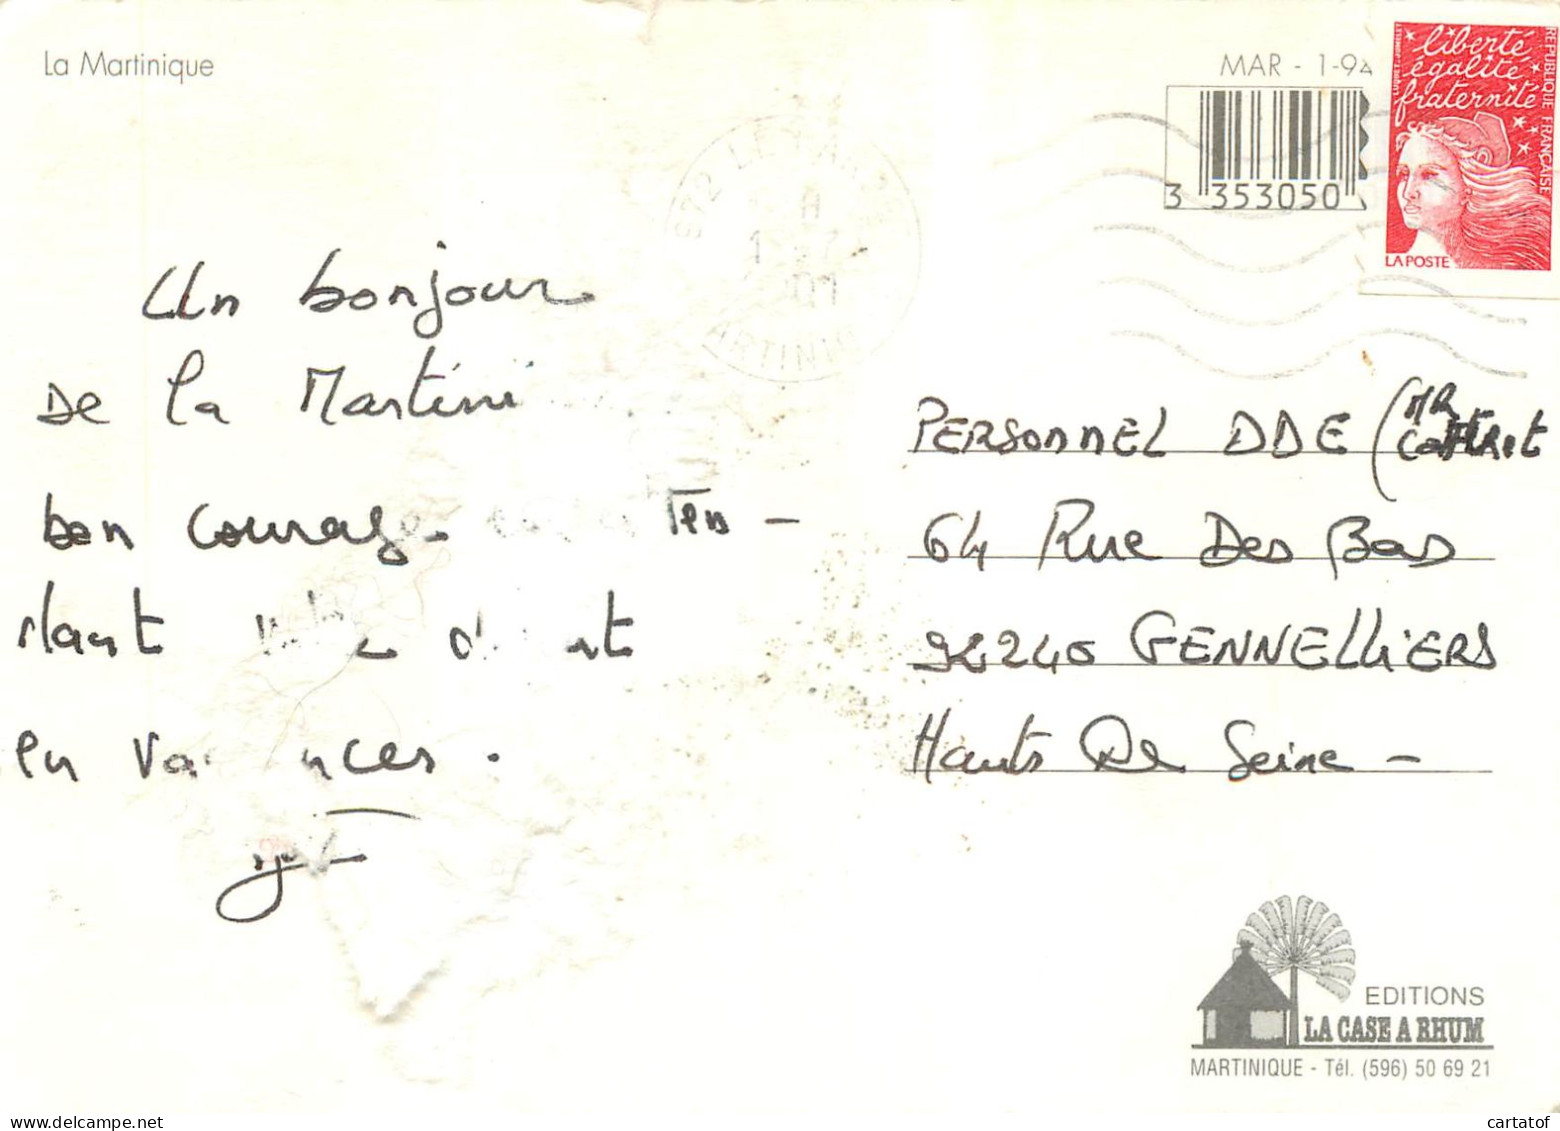 La Martinique
MAR - 1-94
3 353050
liberté
égalité
fraternité
REPUBLIQUE FRANÇAISE
LA POSTE
972 LE
1 7
ARTINI
Un bonjour
De la Martini
bon courage. Pen -
dant
en vacances.
PERSONNEL DDE (MR
64 Rue Des Bas
92240 GENNELLIERS
Hauts De Seine -
EDITIONS
LA CASE A RHUM
MARTINIQUE - Tél. (596) 50 69 21
cartatof